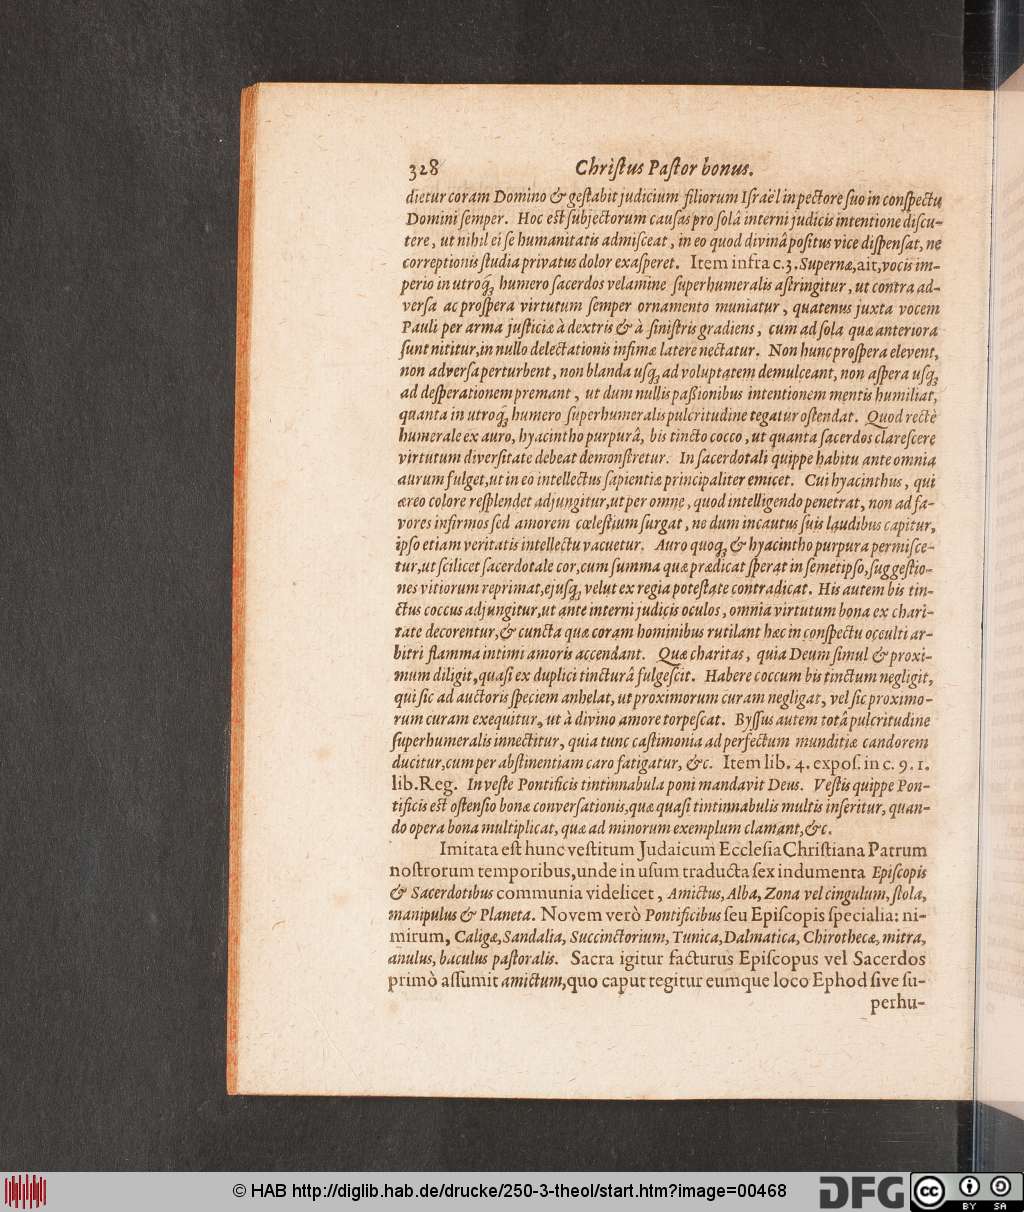 328 Chriſtus Paſtor bonus.
dietur coram Domino & geſtabit judicium filiorum Iſraël in pectore ſuo in conſpectu
Domini ſemper. Hoc eſt ſubjectorum cauſas pro ſolâ interni judicis intentione diſcu-
tere, ut nihil ei ſe humanitatis admiſceat, in eo quod divinâ poſitus vice diſpenſat, ne
correptionis ſtudia privatus dolor exaſperet. Item infra c.3. Supernæ, ait, vocis im-
perio in utroq; humero ſacerdos velamine ſuperhumeralis aſtringitur, ut contra ad-
verſa ac proſpera virtutum ſemper ornamento muniatur, quatenus juxta vocem
Pauli per arma juſticiæ à dextris & à ſiniſtris gradiens, cum ad ſola quæ anteriora
ſunt nititur, in nullo delectationis infimæ latere nectatur. Non hunc proſpera elevent,
non adverſa perturbent, non blanda uſq; ad voluptatem demulceant, non aſpera uſq;
ad deſperationem premant, ut dum nullis paſſionibus intentionem mentis humiliat,
quanta in utroq; humero ſuperhumeralis pulcritudine tegatur oſtendat. Quod rectè
humerale ex auro, hyacintho purpurâ, bis tincto cocco, ut quanta ſacerdos clareſcere
virtutum diverſitate debeat demonſtretur. In ſacerdotali quippe habitu ante omnia
aurum fulget, ut in eo intellectus ſapientiæ principaliter emicet. Cui hyacinthus, qui
æreo colore reſplendet adjungitur, ut per omne, quod intelligendo penetrat, non ad fa-
vores infirmos ſed amorem cœleſtium ſurgat, ne dum incautus ſuis laudibus capitur,
ipſo etiam veritatis intellectu vacuetur. Auro quoq; & hyacintho purpura permiſce-
tur, ut ſcilicet ſacerdotale cor, cum ſumma quæ prædicat ſperat in ſemetipſo, ſuggeſtio-
nes vitiorum reprimat, ejuſq; velut ex regia poteſtate contradicat. His autem bis tin-
ctus coccus adjungitur, ut ante interni judicis oculos, omnia virtutum bona ex chari-
tate decorentur, & cuncta quæ coram hominibus rutilant hæc in conſpectu occulti ar-
bitri flamma intimi amoris accendant. Quæ charitas, quia Deum ſimul & proxi-
mum diligit, quaſi ex duplici tincturâ fulgeſcit. Habere coccum bis tinctum negligit,
qui ſic ad auctoris ſpeciem anhelat, ut proximorum curam negligat, vel ſic proximo-
rum curam exequitur, ut à divino amore torpeſcat. Byſſus autem totâ pulcritudine
ſuperhumeralis innectitur, quia tunc caſtimonia ad perfectum munditiæ candorem
ducitur, cum per abſtinentiam caro fatigatur, &c. Item lib. 4. expoſ. in c. 9. 1.
lib. Reg. In veſte Pontificis tintinnabula poni mandavit Deus. Veſtis quippe Pon-
tificis eſt oſtenſio bonæ converſationis, quæ quaſi tintinnabulis multis inſeritur, quan-
do opera bona multiplicat, quæ ad minorum exemplum clamant, &c.
Imitata eſt hunc veſtitum Judaicum Eccleſia Chriſtiana Patrum
noſtrorum temporibus, unde in uſum traducta ſex indumenta Epiſcopis
& Sacerdotibus communia videlicet, Amictus, Alba, Zona vel cingulum, ſtola,
manipulus & Planeta. Novem verò Pontificibus ſeu Epiſcopis ſpecialia: ni-
mirum, Caligæ, Sandalia, Succinctorium, Tunica, Dalmatica, Chirothecæ, mitra,
anulus, baculus paſtoralis. Sacra igitur facturus Epiſcopus vel Sacerdos
primò aſſumit amictum, quo caput tegitur eumque loco Ephod ſive ſu-
perhu-
© HAB http://diglib.hab.de/drucke/250-3-theol/start.htm?image=00468
DFG cc BY SA